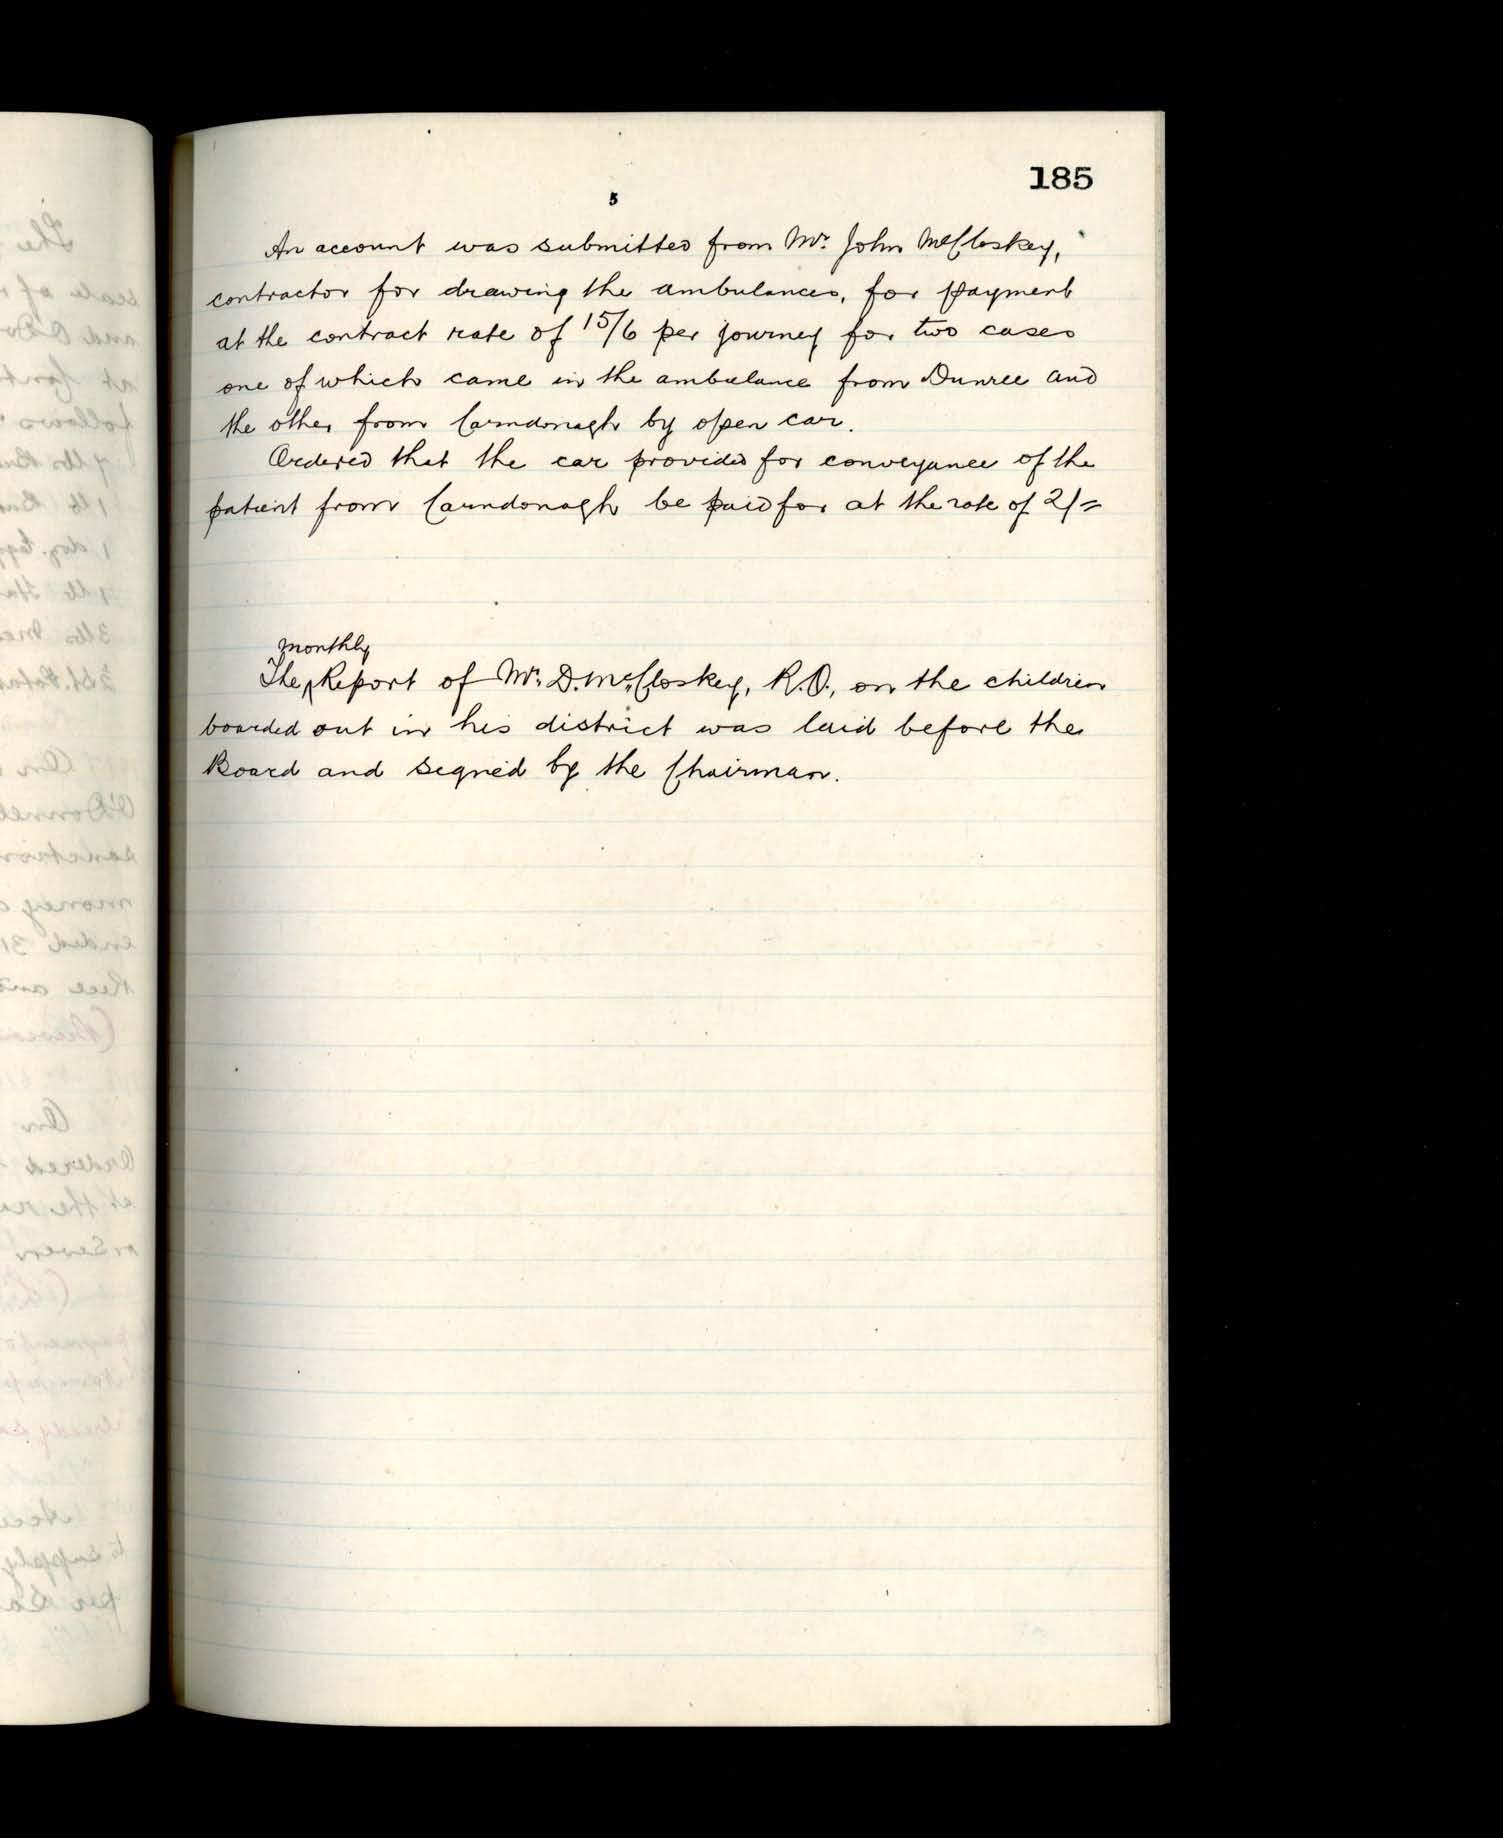 185
5
An account was submitted from Mr. John McCloskey,
contractor for drawing the ambulances, for payment
at the contract rate of 15/6 per journey for two cases
one of which came in the ambulance from Dunree and
the other from Carndonagh by open car.
Ordered that the car provided for conveyance of the
patient from Carndonagh be paid for at the rate of 2/=
monthly
The Report of Mr. D. McCloskey, R.O., on the children
boarded out in his district was laid before the
Board and signed by the Chairman.